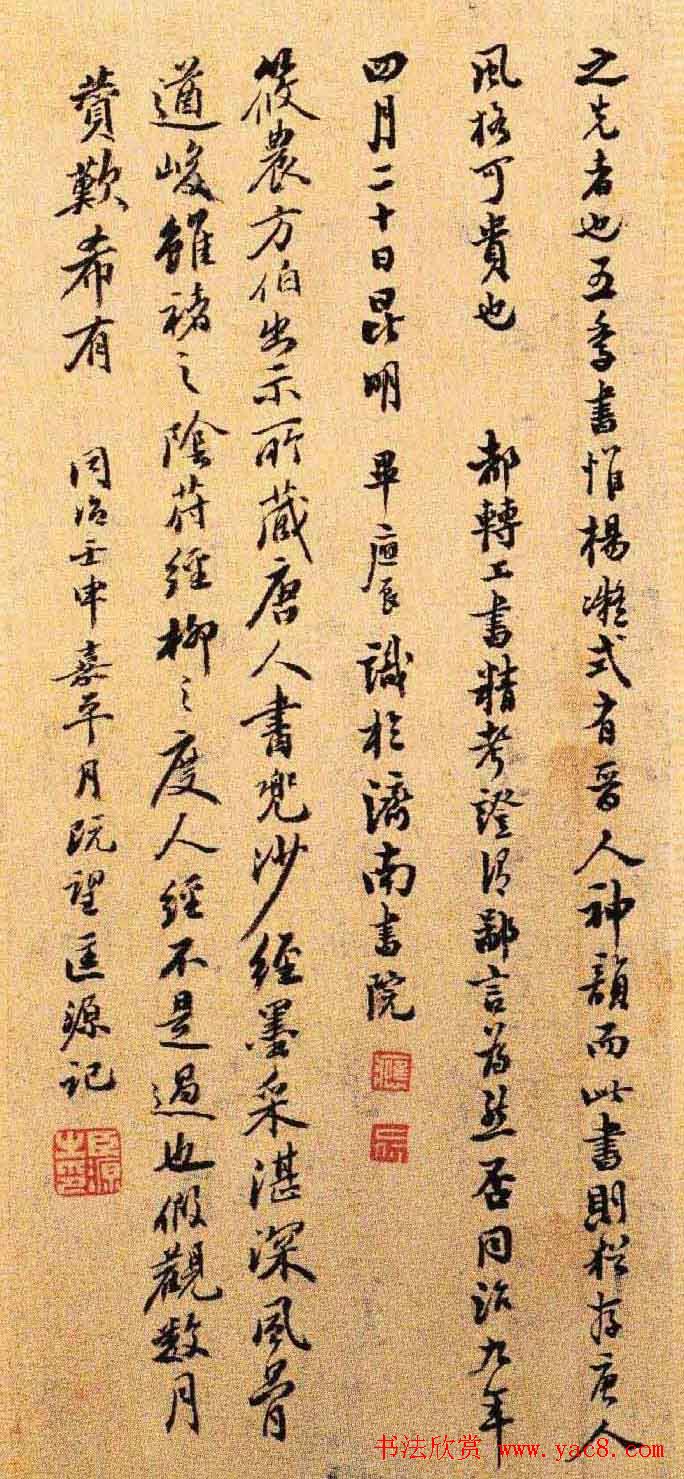 之先者也五季書惟楊凝式有晉人神韻而此書則猶存唐人
風格可貴也 都轉工書精考證得鄙言為然否同治九年
四月二十日昆明 畢應辰識於濟南書院
筱農方伯出示所藏唐人書兜沙經墨采湛深風骨
遒峻雖褚之陰符經柳之度人經不是過也假觀數月
贊歎希有 同治壬申嘉平月 望匡源記
應
辰
臣源
之印
书法欣赏 www.yac8.com